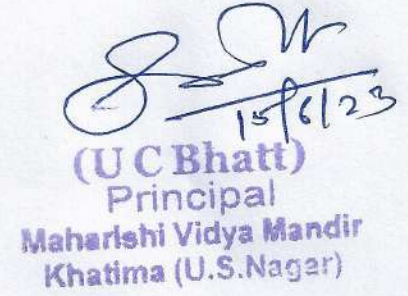 15/6/23
(U C Bhatt)
Principal
Maharishi Vidya Mandir
Khatima (U.S.Nagar)